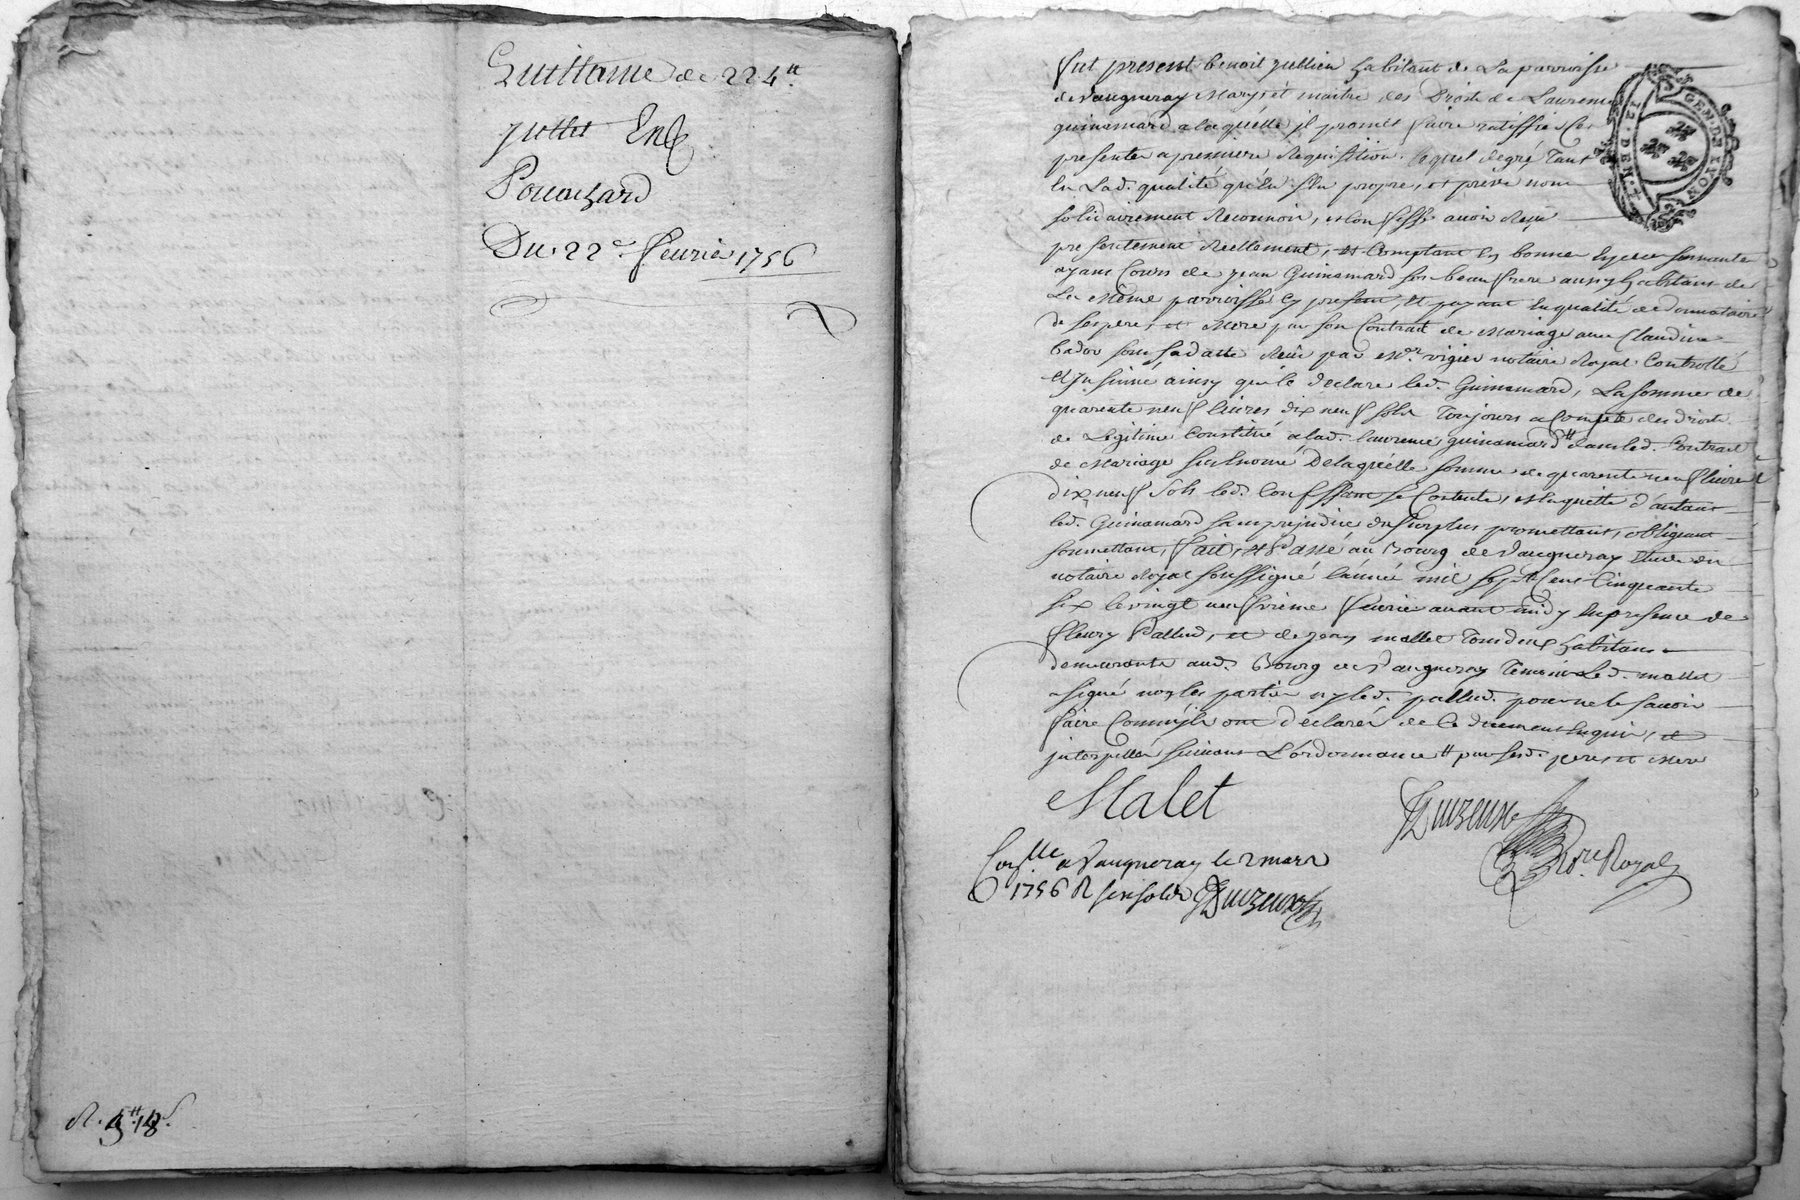 Quittance de 224 ᵗᵗ
Du 22ᵉ feurier 1756
R. 18ˢ.
GEN. DE LYON
12. DEN.
fut present benoit jullien habitant de La parroisse
de Vaugneray Mary et maitre des Droits de Laurence
guinamard a laquelle il promet faire ratiffier Ces
presentes a premiere Requisition. lequel de gré tant
En Lad. qualité qu'En son propre, et privé nom
solidairement Reconnoit, et Confesse auoir Reçu
presentement Reellement, et Comptant En bonnes Especes sonnantes
ayant Cours de jean Guinamard son beau frere aussy habitant de
La Même parroisse Cy present, et payant En qualité de donnataire
de ses pere, et Mere par son Contrat de Mariage auec Claudine
sous sa datte Reçu par Mᵉ. vigier notaire Royal Controllé
et Jnsinué ainsy qu'il le declare led. Guinamard, La somme de
quarente neuf liures dix neuf sols Toujours a Compte des droits
de Legitime Constitué a lad. laurence guinamard ᵗᵗ dans led. Contrat
de Mariage susEnomé De laquelle somme de quarente neuf liures
dix neuf sols led. Confessant se Contente, et En quitte d'autant
led. Guinamard sans prejudice du surplus promettant, obligeant
soumettant, fait, et Passé au Bourg de Vaugneray Etude du
notaire Royal soussigné l'année mil sept Cent Cinquante
six le vingt neufvième feurier auant midy En presence de
fleury Pallud, et de jean mallet Tous deux habitans
demeurants aud. Bourg de Vaugneray Temoins Led. mallet
a signé non les parties ny led. pallud. pour ne le sauoir
faire Comm'jls ont declarés de Ce duement Enquis, et
jnterpellés suiuant L'ordonnance ᵗᵗ par sesd. pere, et Mere
Malet
Nore. Royal
Conᵗˡˡᵉ a Vaugneray le 2 mars
1756 R six sols